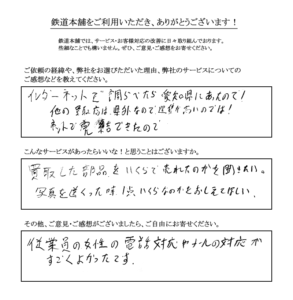 鉄道本舗をご利用いただき、ありがとうございます！
鉄道本舗では、サービス・お客様対応の改善に日々取り組んでおります。
些細なことでも構いません。ぜひ、ご意見・ご感想をお寄せください。
ご依頼の経緯や、弊社をお選びいただいた理由、弊社のサービスについての
ご感想などを教えてください。
インターネットで調べたら愛知県にあたので！
他の買取方は県外なので送料高いのでは！
ネットで完結できたので
こんなサービスがあったらいいな！と思うことはございますか。
買取した部品をいくらで売れたのかを聞きたい。
写真を送くった時1点いくらなのかをおしえてほしい
その他、ご意見・ご感想がございましたら、ご自由にお寄せください。
従業員の女性の電話対応やメールの対応が
すごくよかったです。